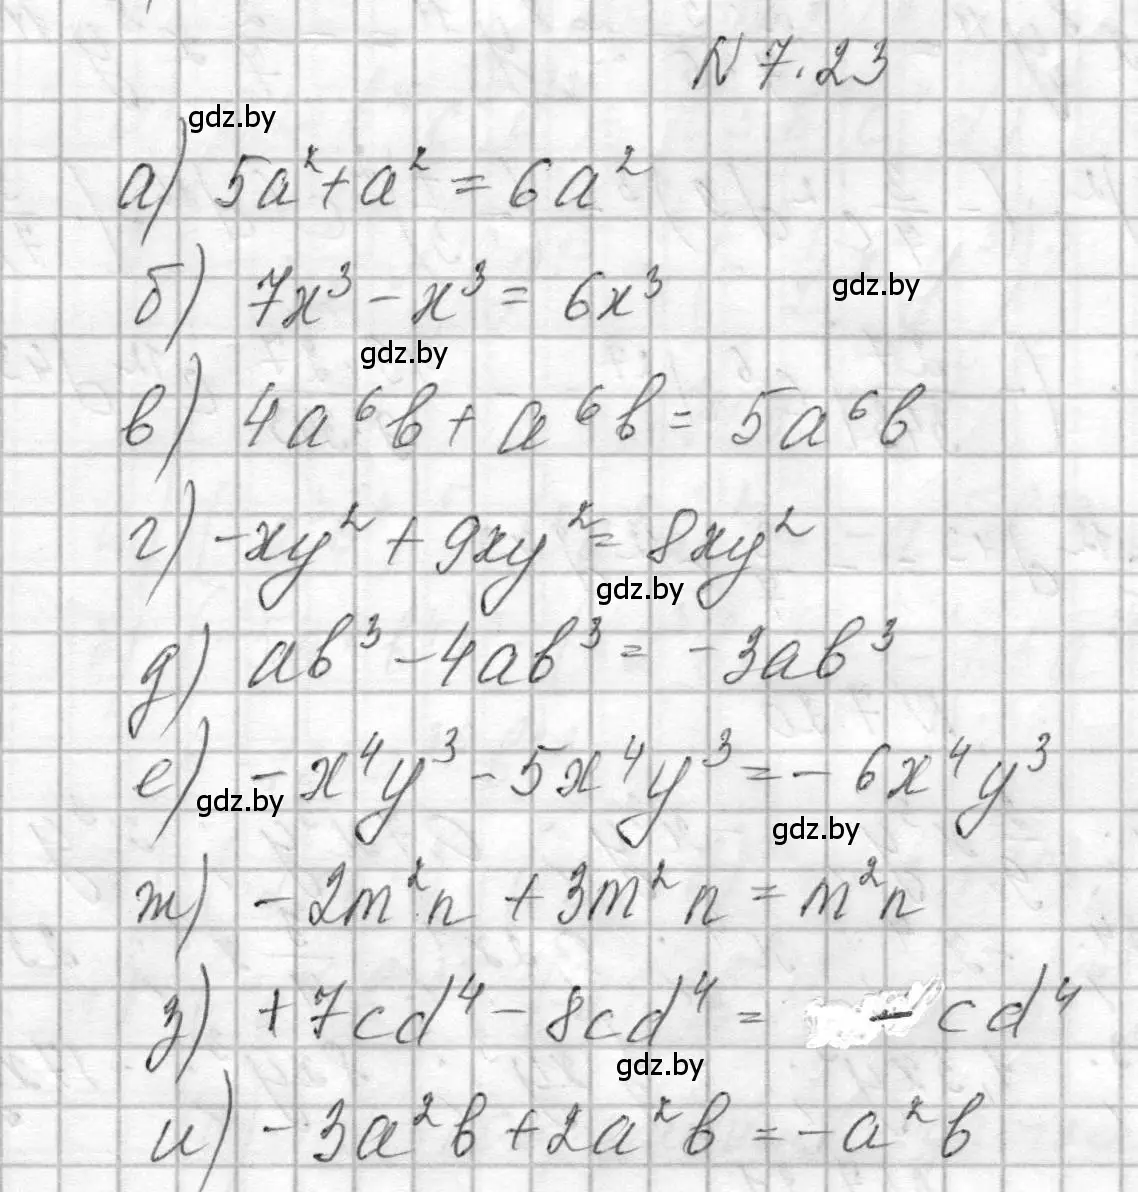 N 7.23
gdz.by
а) 5a² + a² = 6a²
б) 7x³ - x³ = 6x³
gdz.by
gdz.by
в) 4a⁶b + a⁶b = 5a⁶b
г) -xy² + 9xy² = 8xy²
gdz.by
д) ab³ - 4ab³ = -3ab³
е) -x⁴y³ - 5x⁴y³ = -6x⁴y³
gdz.by
gdz.by
ж) -2m²n + 3m²n = m²n
з) +7cd⁴ - 8cd⁴ = -cd⁴
gdz.by
и) -3a²b + 2a²b = -a²b